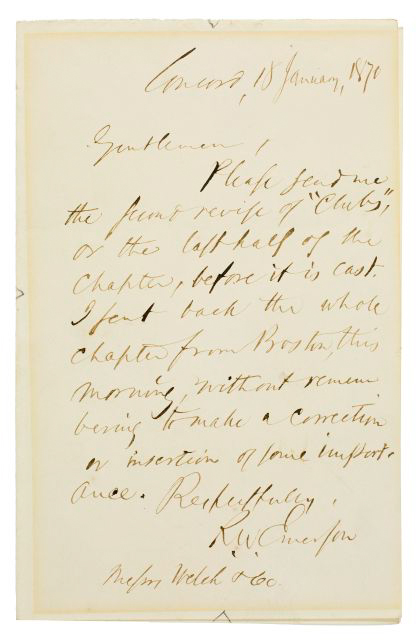 Concord, 18 January, 1870
Gentlemen,
Please send me
the second revise of "Clubs",
or the last half of the
Chapter, before it is cast.
I sent back the whole
chapter from Boston, this
morning, without remem
bering to make a correction
or insertion of some import-
ance. Respectfully,
R.W. Emerson
Messrs Welch & Co.